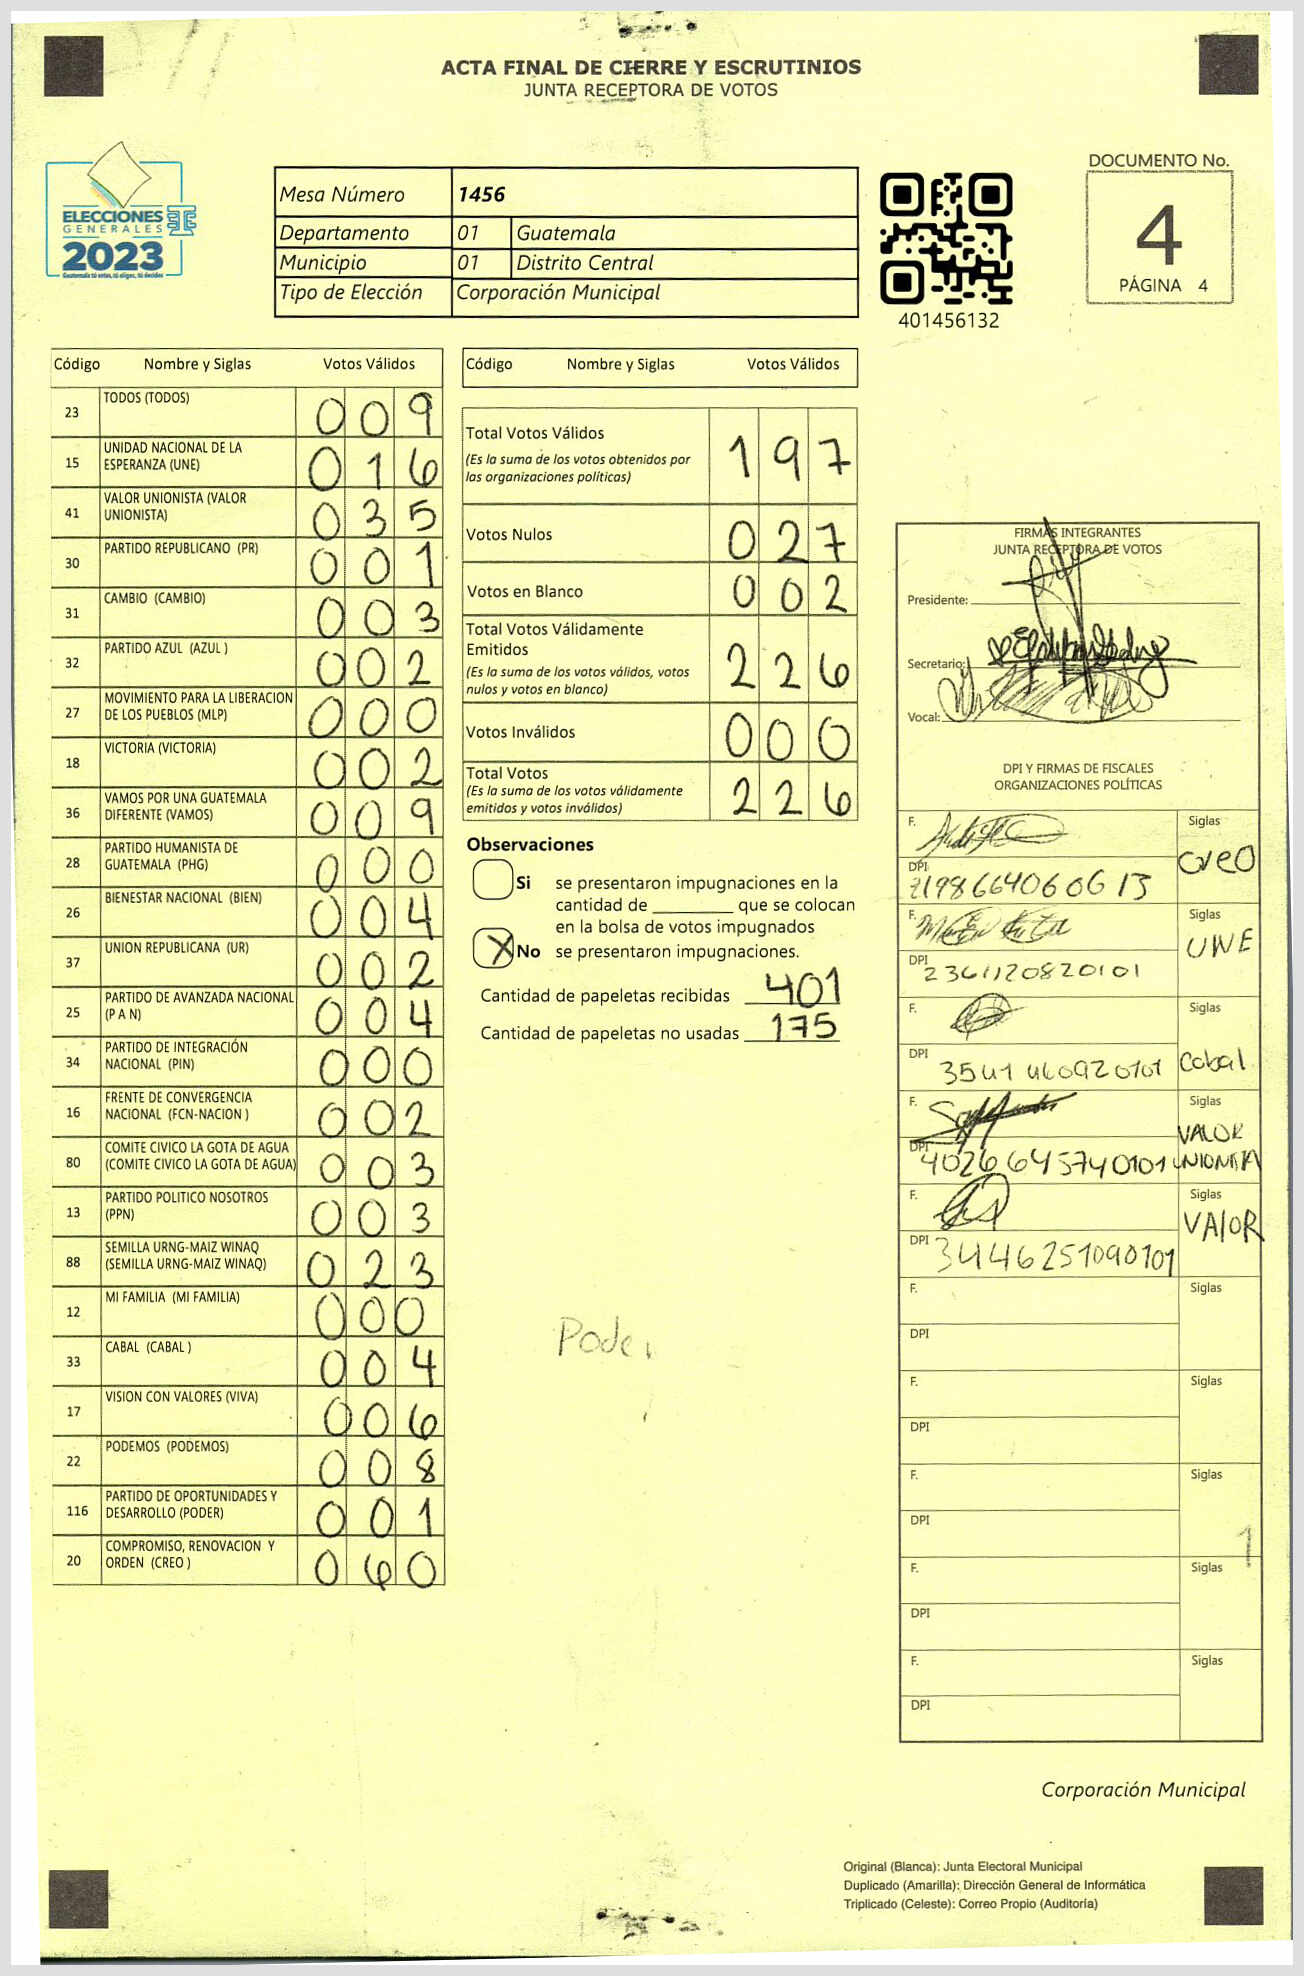 ACTA FINAL DE CIERRE Y ESCRUTINIOS
JUNTA RECEPTORA DE VOTOS
ELECCIONES
GENERALES
2023
Guatemala tú votas, tú eliges, tú decides
Mesa Número 1456
Departamento 01 Guatemala
Municipio 01 Distrito Central
Tipo de Elección Corporación Municipal
401456132
DOCUMENTO No.
4
PÁGINA 4
Código Nombre y Siglas Votos Válidos
23 TODOS (TODOS) 009
15 UNIDAD NACIONAL DE LA ESPERANZA (UNE) 016
41 VALOR UNIONISTA (VALOR UNIONISTA) 035
30 PARTIDO REPUBLICANO (PR) 001
31 CAMBIO (CAMBIO) 003
32 PARTIDO AZUL (AZUL ) 002
27 MOVIMIENTO PARA LA LIBERACION DE LOS PUEBLOS (MLP) 000
18 VICTORIA (VICTORIA) 002
36 VAMOS POR UNA GUATEMALA DIFERENTE (VAMOS) 009
28 PARTIDO HUMANISTA DE GUATEMALA (PHG) 000
26 BIENESTAR NACIONAL (BIEN) 004
37 UNION REPUBLICANA (UR) 002
25 PARTIDO DE AVANZADA NACIONAL (P A N) 004
34 PARTIDO DE INTEGRACIÓN NACIONAL (PIN) 000
16 FRENTE DE CONVERGENCIA NACIONAL (FCN-NACION ) 002
80 COMITE CIVICO LA GOTA DE AGUA (COMITE CIVICO LA GOTA DE AGUA) 003
13 PARTIDO POLITICO NOSOTROS (PPN) 003
88 SEMILLA URNG-MAIZ WINAQ (SEMILLA URNG-MAIZ WINAQ) 023
12 MI FAMILIA (MI FAMILIA) 000
33 CABAL (CABAL ) 004
17 VISION CON VALORES (VIVA) 006
22 PODEMOS (PODEMOS) 008
116 PARTIDO DE OPORTUNIDADES Y DESARROLLO (PODER) 001
20 COMPROMISO, RENOVACION Y ORDEN (CREO ) 060
Código Nombre y Siglas Votos Válidos
Total Votos Válidos 197
(Es la suma de los votos obtenidos por
las organizaciones políticas)
Votos Nulos 027
Votos en Blanco 002
Total Votos Válidamente
Emitidos 226
(Es la suma de los votos válidos, votos
nulos y votos en blanco)
Votos Inválidos 000
Total Votos 226
(Es la suma de los votos válidamente
emitidos y votos inválidos)
Observaciones
Si se presentaron impugnaciones en la
cantidad de ________ que se colocan
en la bolsa de votos impugnados
X No se presentaron impugnaciones.
Cantidad de papeletas recibidas 401
Cantidad de papeletas no usadas 175
Poder
FIRMAS INTEGRANTES
JUNTA RECEPTORA DE VOTOS
Presidente:
Secretario:
Vocal:
DPI Y FIRMAS DE FISCALES
ORGANIZACIONES POLÍTICAS
F. Siglas
creo
DPI 2198664060613
F. Siglas
UNE
DPI 2361120820101
F. Siglas
Cabal
DPI 3541460920101
F. Siglas
VALOR
UNIONISTA
DPI 4026645740101
F. Siglas
VALOR
DPI 3446251090101
F. Siglas
DPI
F. Siglas
DPI
F. Siglas
DPI
F. Siglas
DPI
F. Siglas
DPI
Corporación Municipal
Original (Blanca): Junta Electoral Municipal
Duplicado (Amarilla): Dirección General de Informática
Triplicado (Celeste): Correo Propio (Auditoría)